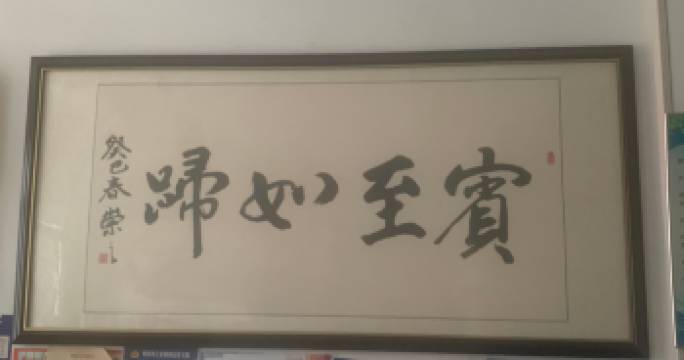 賓至如歸
癸巳春 榮之